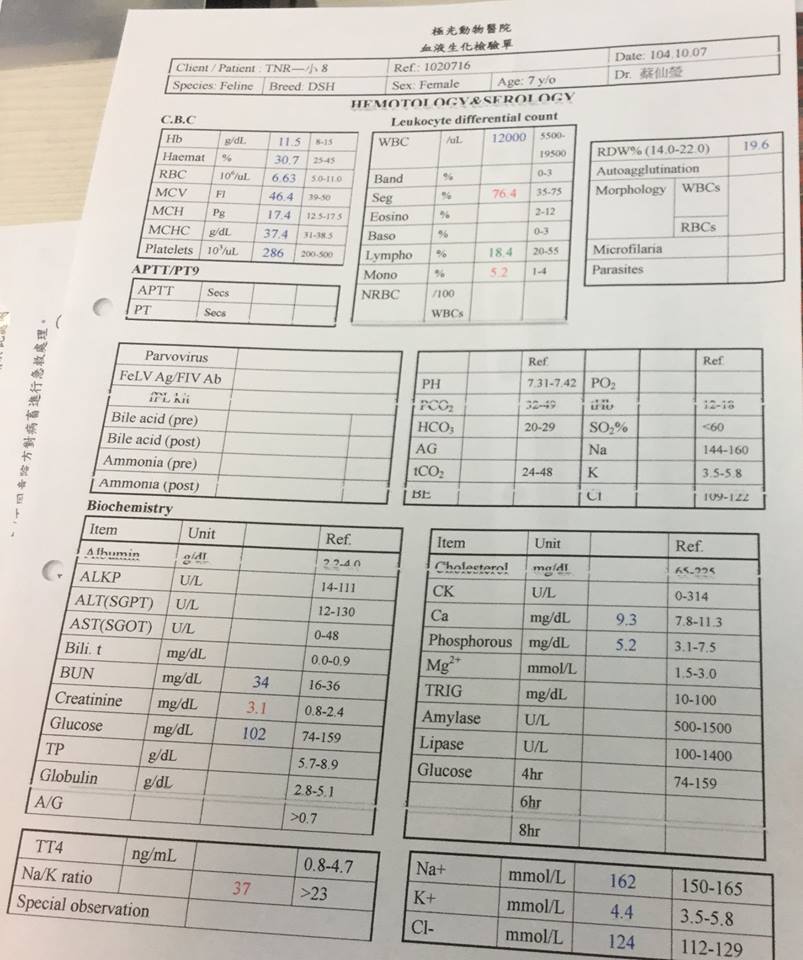 極光動物醫院
血液生化檢驗單
Client / Patient : TNR—小 8 Ref.: 1020716 Date: 104.10.07
Species: Feline Breed: DSH Sex: Female Age: 7 y/o Dr. 蘇仙螢
HEMOTOLOGY&SEROLOGY
C.B.C
Hb g/dL 11.5 8-15
Haemat % 30.7 25-45
RBC 10⁶/uL 6.63 5.0-11.0
MCV Fl 46.4 39-50
MCH Pg 17.4 12.5-17.5
MCHC g/dL 37.4 31-38.5
Platelets 10³/uL 286 200-500
APTT/PT9
APTT Secs
PT Secs
Leukocyte differential count
WBC /uL 12000 5500-
19500
Band % 0-3
Seg % 76.4 35-75
Eosino % 2-12
Baso % 0-3
Lympho % 18.4 20-55
Mono % 5.2 1-4
NRBC /100
WBCs
RDW% (14.0-22.0) 19.6
Autoagglutination
Morphology WBCs
RBCs
Microfilaria
Parasites
Parvovirus
FeLV Ag/FIV Ab
fPL kit
Bile acid (pre)
Bile acid (post)
Ammonia (pre)
Ammonia (post)
Ref. Ref.
PH 7.31-7.42 PO₂
PCO₂ 32-49 tHb 12-18
HCO₃ 20-29 SO₂% <60
AG Na 144-160
tCO₂ 24-48 K 3.5-5.8
BE Cl 109-122
Biochemistry
Item Unit Ref.
Albumin g/dL 2.2-4.0
ALKP U/L 14-111
ALT(SGPT) U/L 12-130
AST(SGOT) U/L 0-48
Bili. t mg/dL 0.0-0.9
BUN mg/dL 34 16-36
Creatinine mg/dL 3.1 0.8-2.4
Glucose mg/dL 102 74-159
TP g/dL 5.7-8.9
Globulin g/dL 2.8-5.1
A/G >0.7
Item Unit Ref.
Cholesterol mg/dL 65-225
CK U/L 0-314
Ca mg/dL 9.3 7.8-11.3
Phosphorous mg/dL 5.2 3.1-7.5
Mg²⁺ mmol/L 1.5-3.0
TRIG mg/dL 10-100
Amylase U/L 500-1500
Lipase U/L 100-1400
Glucose 4hr 74-159
6hr
8hr
TT4 ng/mL 0.8-4.7
Na/K ratio 37 >23
Special observation
Na+ mmol/L 162 150-165
K+ mmol/L 4.4 3.5-5.8
Cl- mmol/L 124 112-129
方對病畜進行急救處理。